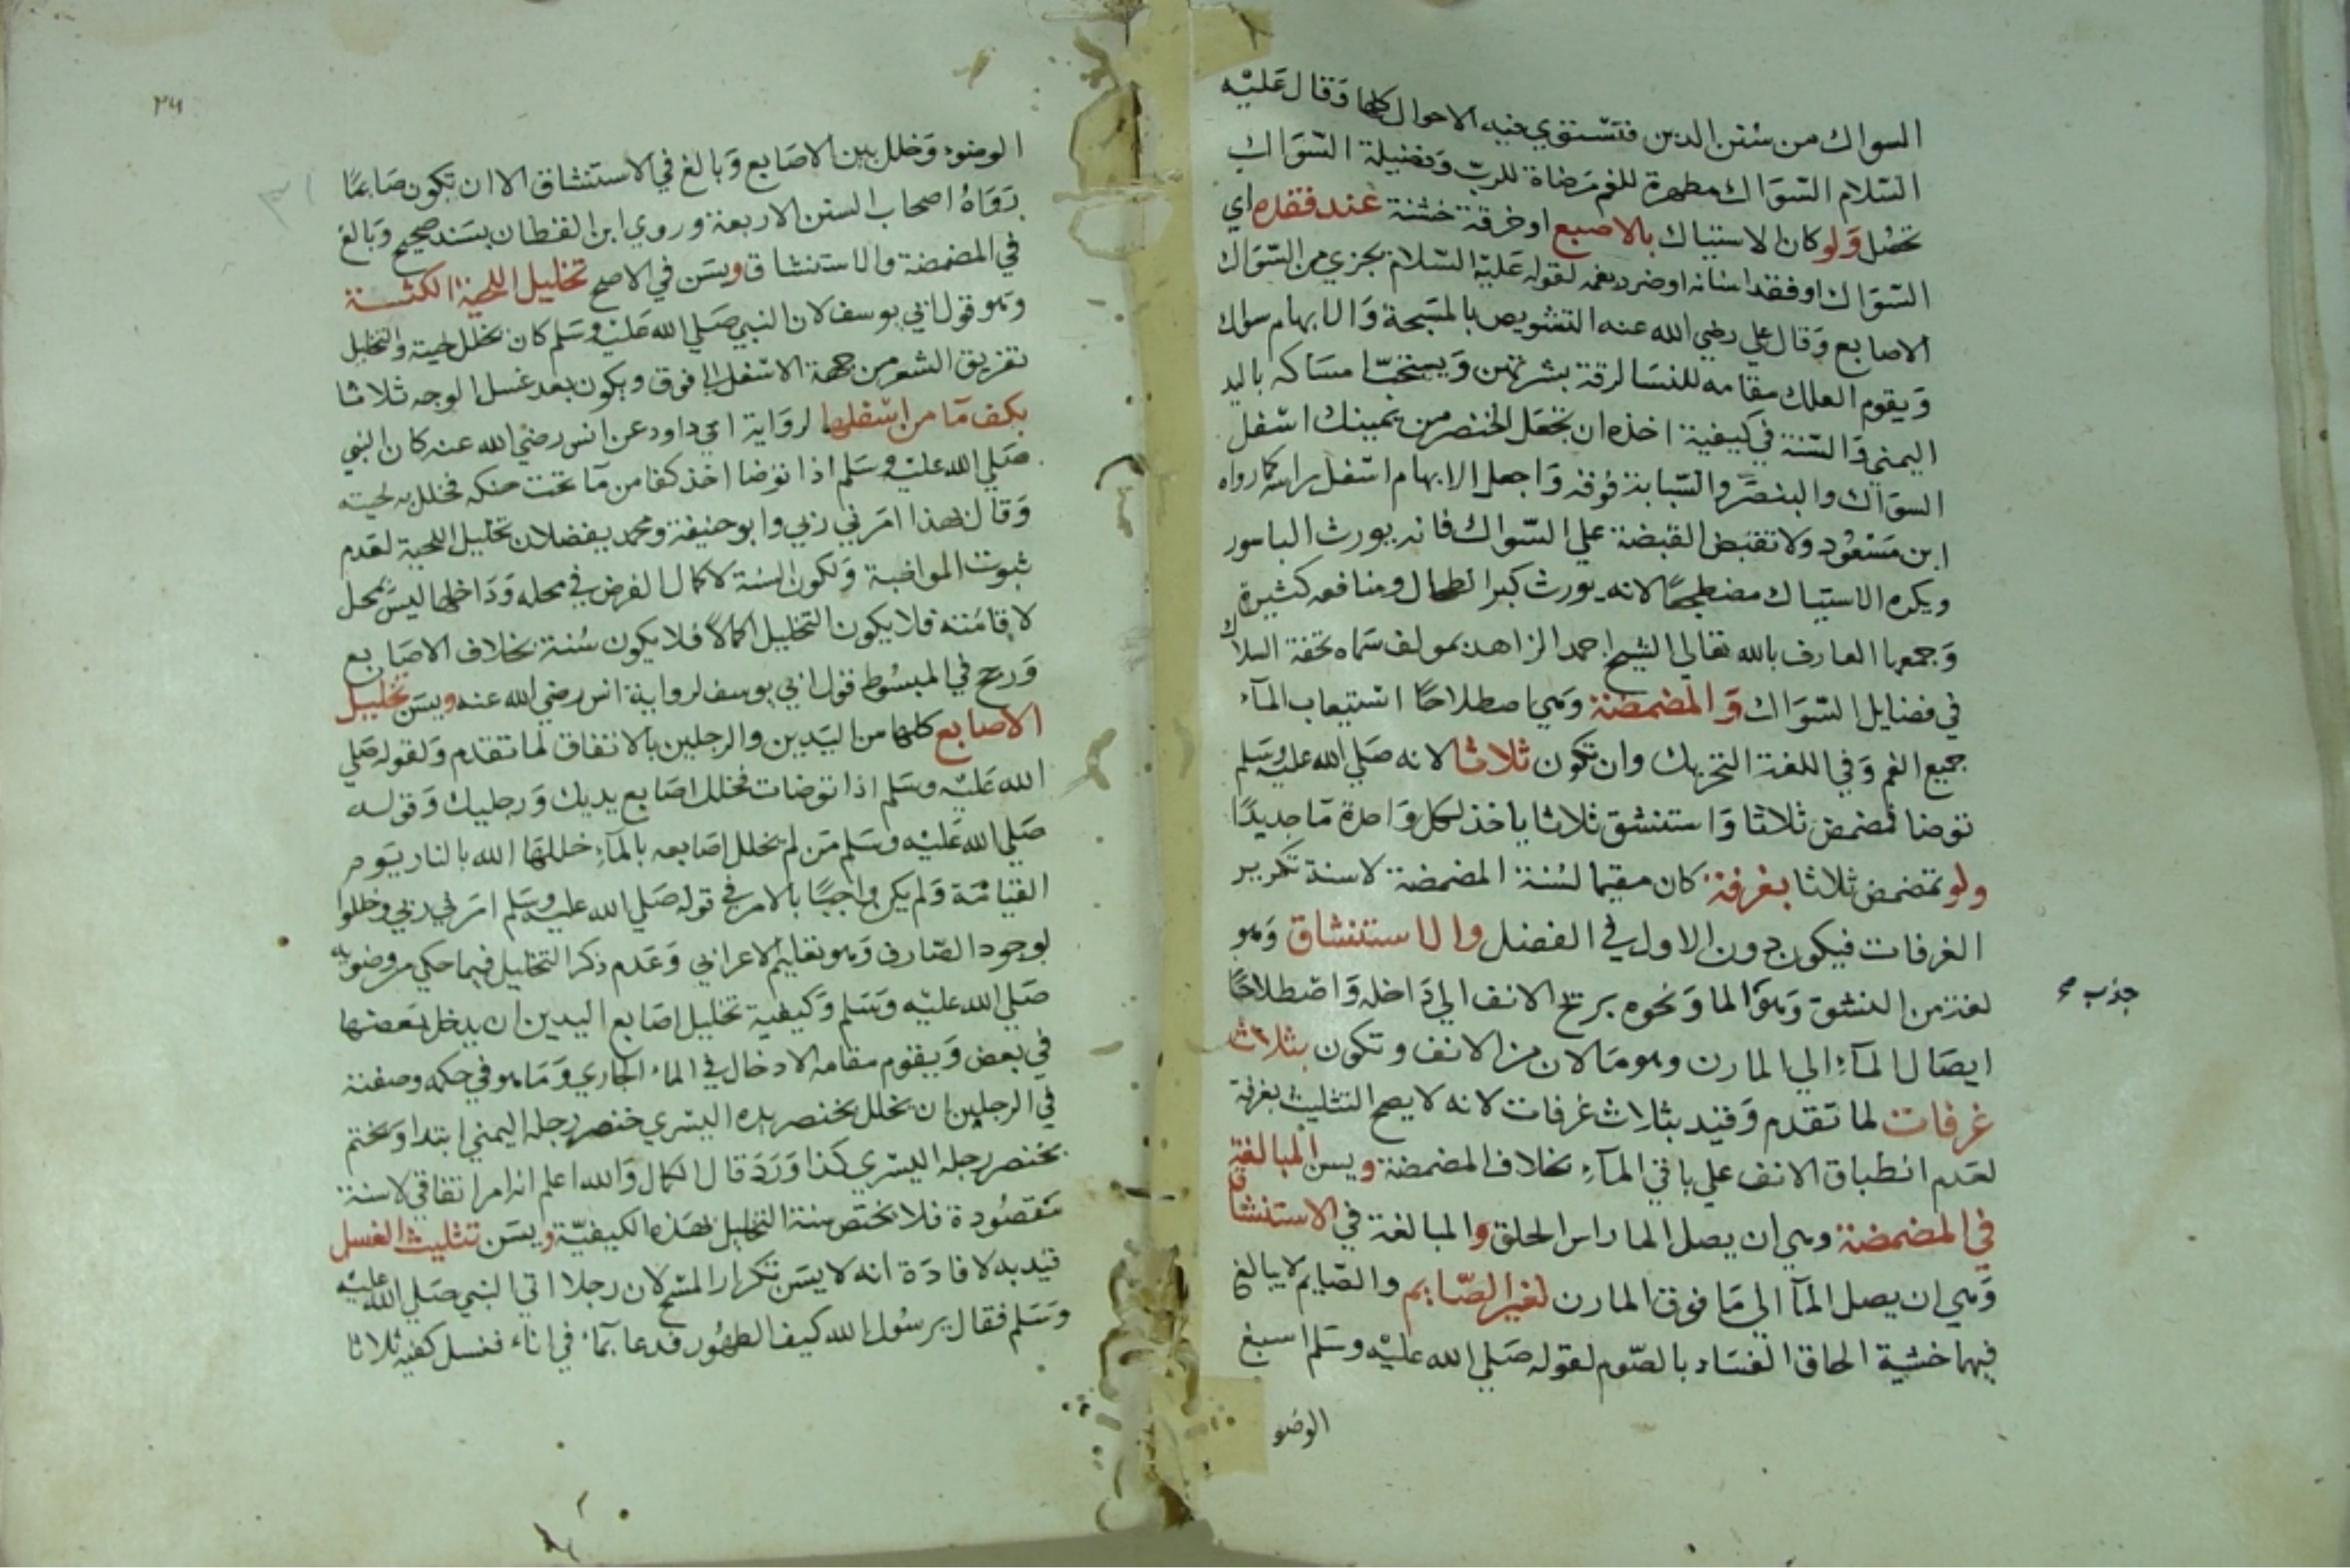 السواك من سنن الدين فتستوي فيه الاحوال كلها وقال عليه
السلام السواك مطهرة للفم مرضاة للرب وفضيلة السواك
تحصل ولو كان الاستياك بالاصبع او خرقة خشنة عند فقده اي
السواك او فقد اسنانه او ضرر بفمه لقوله عليه السلام يجزي من السواك
الاصابع وقال علي رضي الله عنه التشويص بالمسبحة والابهام سواك
ويقوم العلك مقامه للنسا لرقة بشرتهن ويستحب امساكه باليد
اليمني والسنة في كيفية اخذه ان تجعل الخنصر من يمينك اسفل
السواك والبنصر والسبابة فوقه واجعل الابهام اسفل راسه كما رواه
ابن مسعود ولا تقبض القبضة علي السواك فانه يورث الباسور
ويكره الاستياك مضطجعا لانه يورث كبر الطحال ومنافعه كثيرة
وجمعها العارف بالله تعالي الشيخ احمد الزاهد بمولف سماه تحفة السلاك
في فضايل السواك والمضمضة وهي اصطلاحا استيعاب الماء
جميع الفم وفي اللغة التحريك وان تكون ثلاثا لانه صلي الله عليه وسلم
توضا فمضمض ثلاثا واستنشق ثلاثا ياخذ لكل واحدة ما جديدا
ولو تمضمض ثلاثا بغرفة كان مقيما لسنة المضمضة لا سنة تكرير
الغرفات فيكون دون الاول في الفضل والاستنشاق وهو
لغة من النشق وهو الما ونحوه بريح الانف الي داخله واصطلاحا
جذب صح
ايصال الماء الي المارن وهو ما لان من الانف وتكون بثلاث
غرفات لما تقدم وقيد بثلاث غرفات لانه لا يصح التثليث بغرفة
لعدم انطباق الانف علي باقي الماء بخلاف المضمضة ويسن المبالغة
في المضمضة وهي ان يصل الما راس الحلق والمبالغة في الاستنشاق
وهي ان يصل الما الي ما فوق المارن لغير الصايم والصايم لا يبالغ
فيهما خشية الحاق الفساد بالصوم لقوله صلي الله عليه وسلم اسبغ
الوضو
الوضوء وخلل بين الاصابع وبالغ في الاستنشاق الا ان تكون صايما
رواه اصحاب السنن الاربعة وروي ابن القطان بسند صحيح وبالغ
في المضمضة والاستنشاق ويسن في الاصح تخليل اللحية الكثة
وهو قول ابي يوسف لان النبي صلي الله عليه وسلم كان يخلل لحيته والتخليل
تفريق الشعر من جهة الاسفل الي فوق ويكون بعد غسل الوجه ثلاثا
بكف ما من اسفلها لرواية ابي داود عن انس رضي الله عنه كان النبي
صلي الله عليه وسلم اذا توضا اخذ كفا من ما تحت حنكه فخلل به لحيته
وقال بهذا امرني ربي وابو حنيفة ومحمد يفضلان تخليل اللحية لعدم
ثبوت المواظبة ولكون السنة لاكمال الفرض في محله وداخلها ليس بمحل
لاقامته فلا يكون التخليل اكمالا فلا يكون سنة بخلاف الاصابع
ورجح في المبسوط قول ابي يوسف لرواية انس رضي الله عنه ويسن تخليل
الاصابع كلها من اليدين والرجلين بالاتفاق لما تقدم ولقوله صلي
الله عليه وسلم اذا توضات فخلل اصابع يديك ورجليك وقوله
صلي الله عليه وسلم من لم يخلل اصابعه بالماء خللها الله بالنار يوم
القيامة ولم يكن واجبا بالامر في قوله صلي الله عليه وسلم امرني ربي وخللوا
لوجود الصارف وهو تعليم الاعرابي وعدم ذكر التخليل فيما حكي من وضوئه
صلي الله عليه وسلم وكيفية تخليل اصابع اليدين ان يدخل بعضها
في بعض ويقوم مقامه الادخال في الماء الجاري وما هو في حكمه وصفته
في الرجلين ان يخلل بخنصر يده اليسري خنصر رجله اليمني ابتدا ويختم
بخنصر رجله اليسري كذا ورد قال الكمال والله اعلم انه امر اتفاقي لا سنة
مقصودة فلا تختص سنة التخليل بهذه الكيفية ويسن تثليث الغسل
قيد به لافادة انه لا يسن تكرار المسح لان رجلا اتي النبي صلي الله عليه
وسلم فقال يرسول الله كيف الطهور فدعا بماء في اناء فغسل كفيه ثلاثا